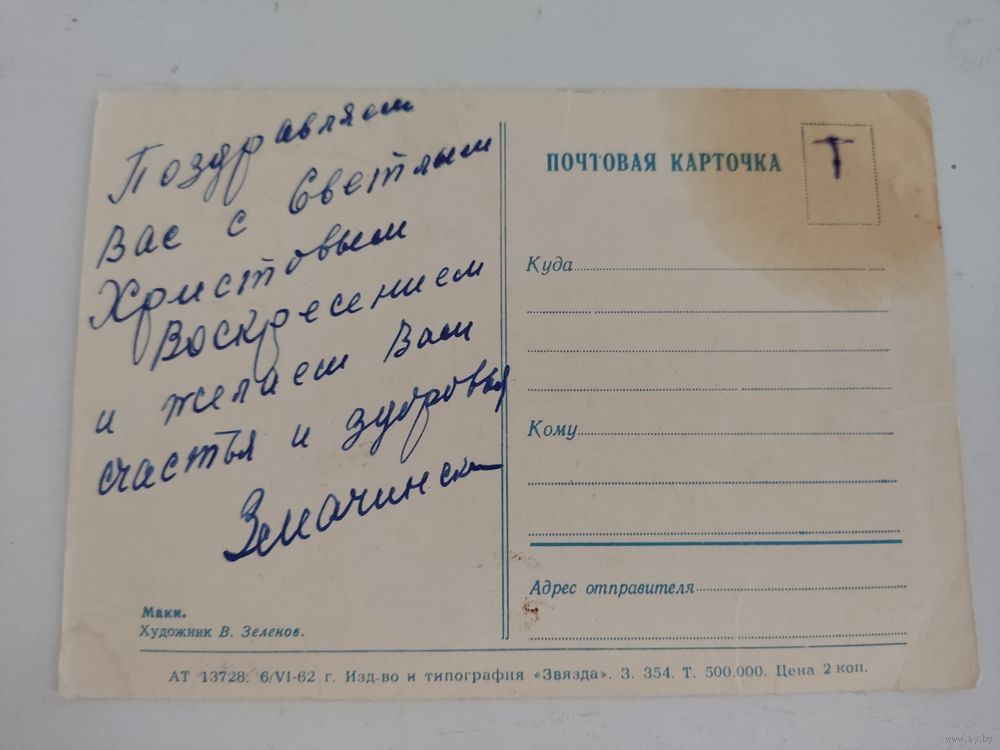 Поздравляем
Вас с Светлым
Христовым
Воскресением
и желаем Вам
счастья и здоровья
Маки.
Художник В. Зеленов.
ПОЧТОВАЯ КАРТОЧКА
Т
Куда
Кому
Адрес отправителя
АТ 13728. 6/VI-62 г. Изд-во и типография «Звязда». З. 354. Т. 500.000. Цена 2 коп.
www.ay.by